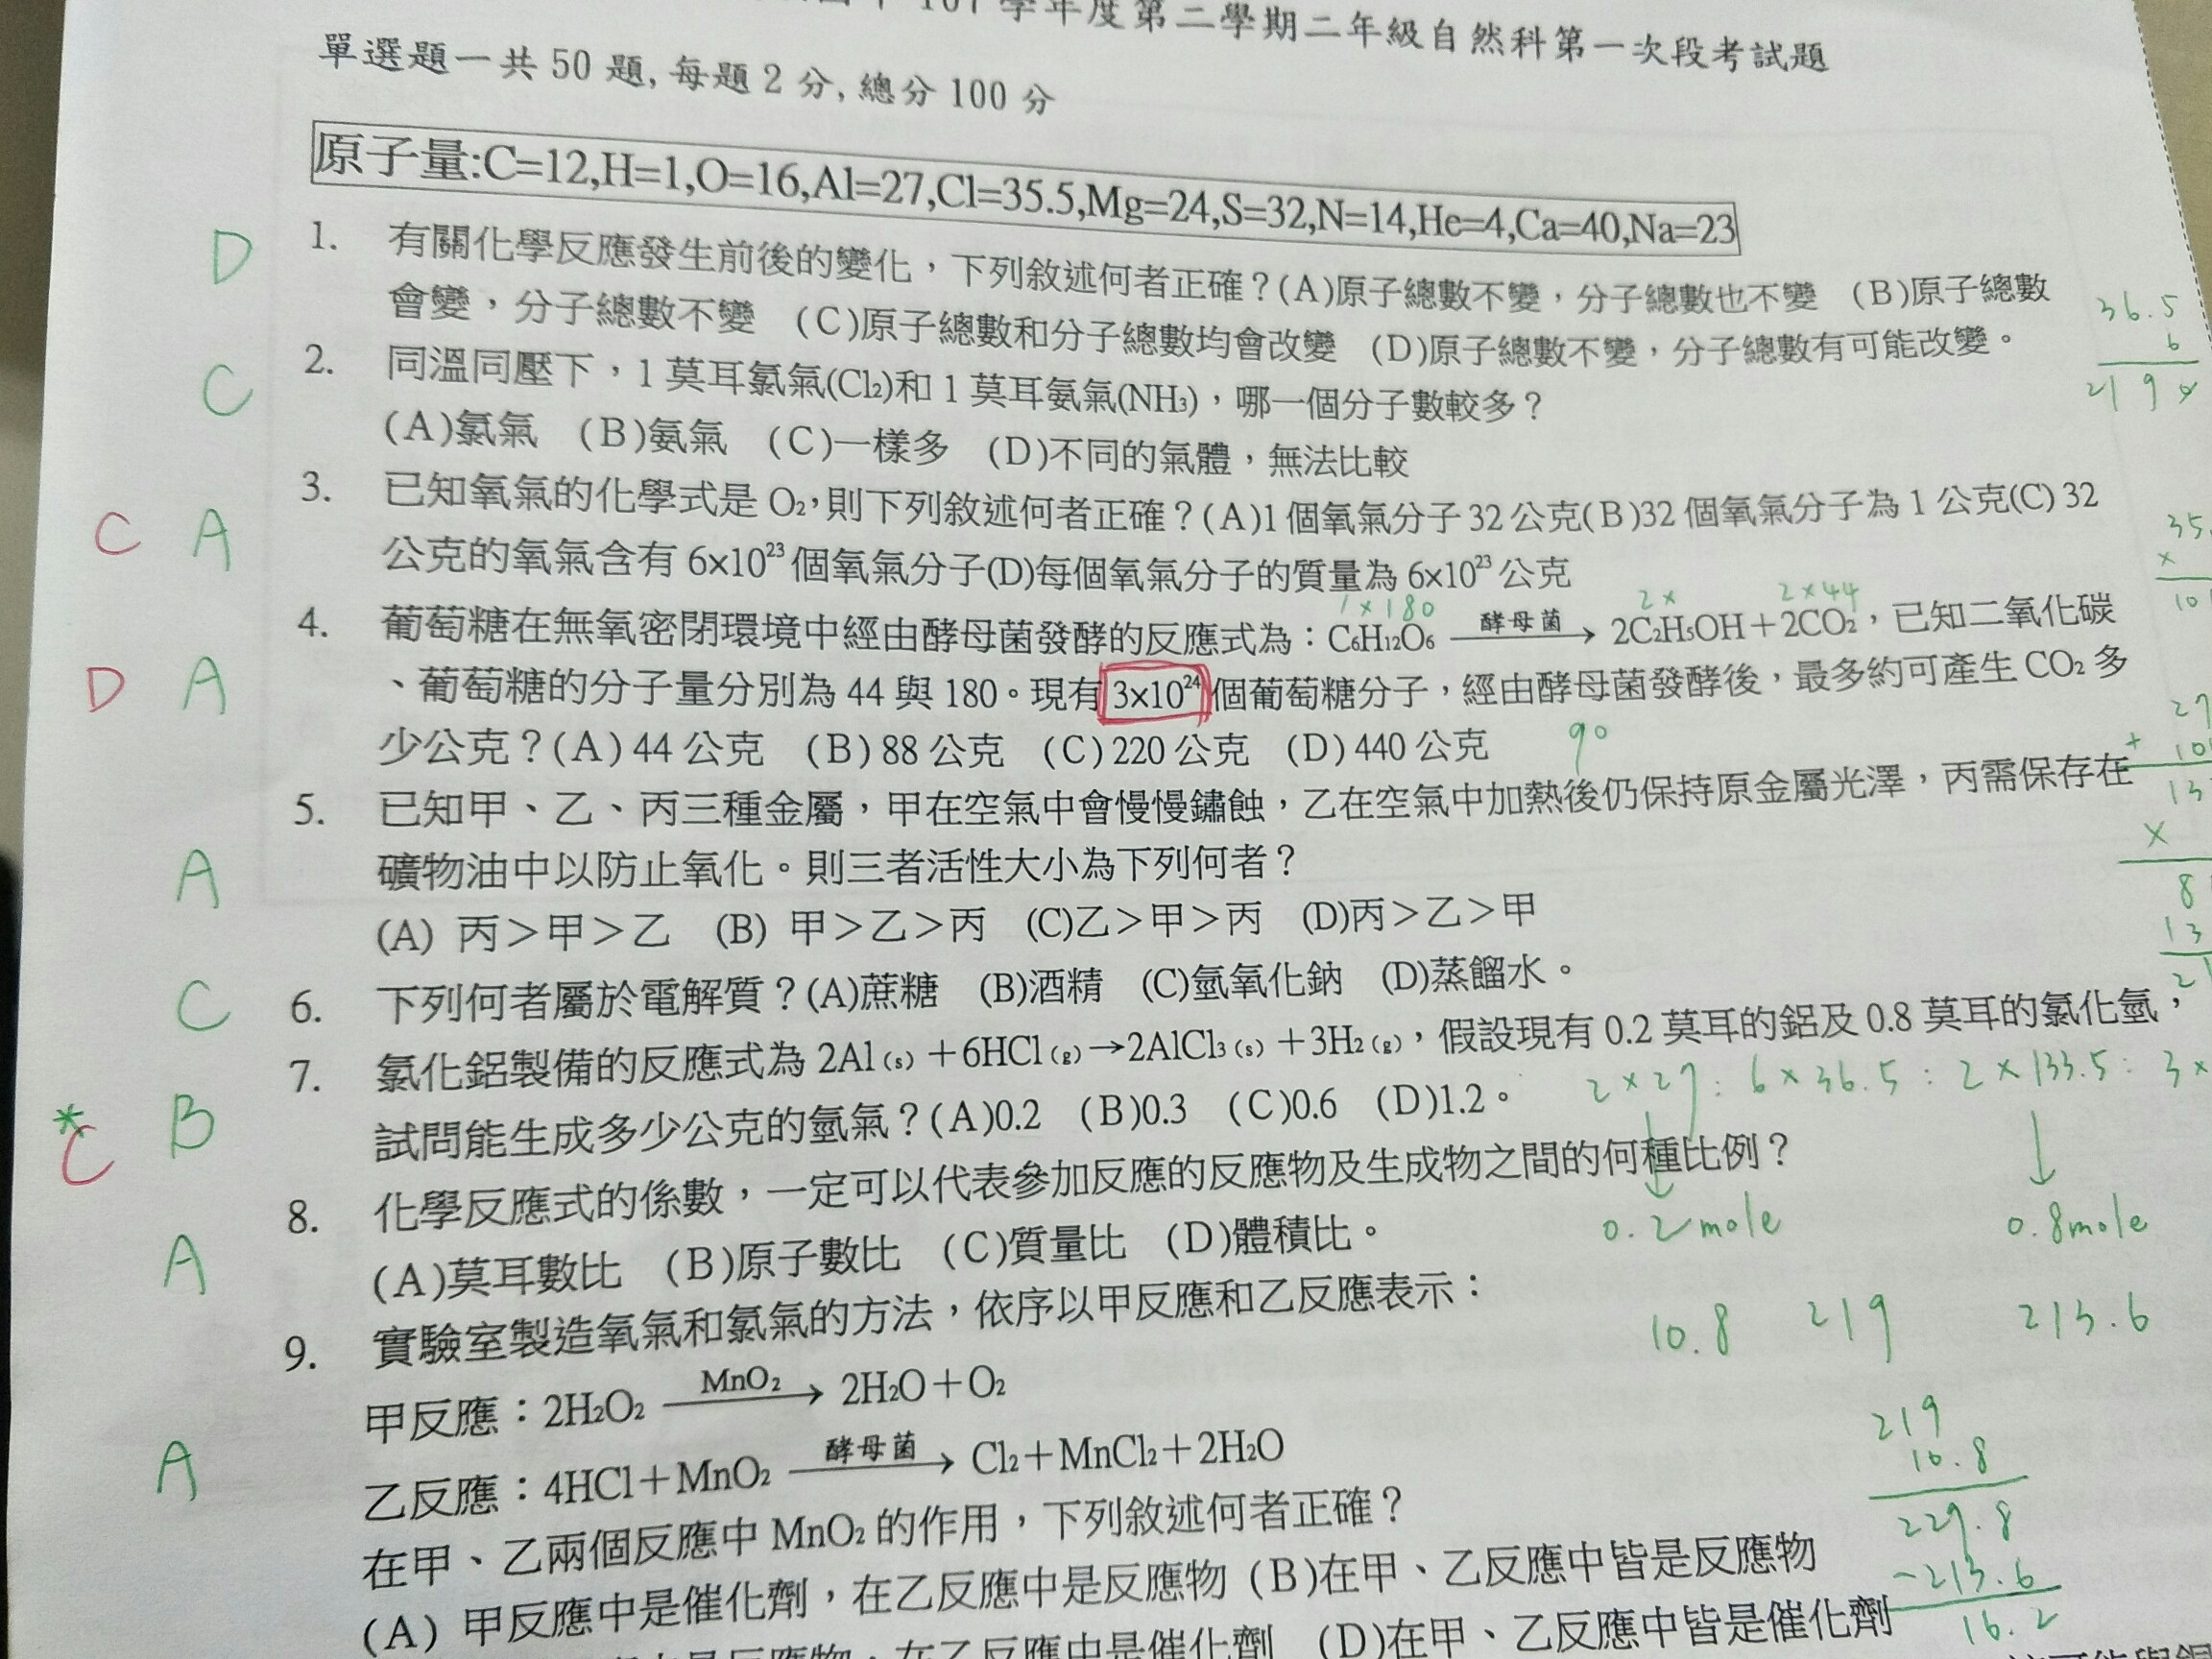 107 學年度第二學期二年級自然科第一次段考試題
單選題一共 50 題, 每題 2 分, 總分 100 分
原子量:C=12,H=1,O=16,Al=27,Cl=35.5,Mg=24,S=32,N=14,He=4,Ca=40,Na=23
D 1. 有關化學反應發生前後的變化，下列敘述何者正確？(A)原子總數不變，分子總數也不變 (B)原子總數
會變，分子總數不變 (C)原子總數和分子總數均會改變 (D)原子總數不變，分子總數有可能改變。
36.5
6
2190
C 2. 同溫同壓下，1 莫耳氯氣(Cl₂)和 1 莫耳氨氣(NH₃)，哪一個分子數較多？
(A)氯氣 (B)氨氣 (C)一樣多 (D)不同的氣體，無法比較
C A 3. 已知氧氣的化學式是 O₂,則下列敘述何者正確？(A)1 個氧氣分子 32 公克(B)32 個氧氣分子為 1 公克(C) 32
公克的氧氣含有 6×10²³ 個氧氣分子(D)每個氧氣分子的質量為 6×10²³ 公克
1×180 2× 2×44
D A 4. 葡萄糖在無氧密閉環境中經由酵母菌發酵的反應式為：C₆H₁₂O₆ 酵母菌→ 2C₂H₅OH＋2CO₂，已知二氧化碳
、葡萄糖的分子量分別為 44 與 180。現有 3×10²⁴ 個葡萄糖分子，經由酵母菌發酵後，最多約可產生 CO₂ 多
少公克？(A) 44 公克 (B) 88 公克 (C) 220 公克 (D) 440 公克
90
A 5. 已知甲、乙、丙三種金屬，甲在空氣中會慢慢鏽蝕，乙在空氣中加熱後仍保持原金屬光澤，丙需保存在
礦物油中以防止氧化。則三者活性大小為下列何者？
(A) 丙＞甲＞乙 (B) 甲＞乙＞丙 (C)乙＞甲＞丙 (D)丙＞乙＞甲
C 6. 下列何者屬於電解質？(A)蔗糖 (B)酒精 (C)氫氧化鈉 (D)蒸餾水。
* C B 7. 氯化鋁製備的反應式為 2Al(s)＋6HCl(g)→2AlCl₃(s)＋3H₂(g)，假設現有 0.2 莫耳的鋁及 0.8 莫耳的氯化氫，
試問能生成多少公克的氫氣？(A)0.2 (B)0.3 (C)0.6 (D)1.2。
2×27: 6×36.5: 2×133.5: 3×
A 8. 化學反應式的係數，一定可以代表參加反應的反應物及生成物之間的何種比例？
(A)莫耳數比 (B)原子數比 (C)質量比 (D)體積比。
0.2mole 0.8mole
10.8 219 213.6
A 9. 實驗室製造氧氣和氯氣的方法，依序以甲反應和乙反應表示：
甲反應：2H₂O₂ MnO₂→ 2H₂O＋O₂
乙反應：4HCl＋MnO₂ 酵母菌→ Cl₂＋MnCl₂＋2H₂O
在甲、乙兩個反應中 MnO₂ 的作用，下列敘述何者正確？
(A) 甲反應中是催化劑，在乙反應中是反應物 (B)在甲、乙反應中皆是反應物
是反應物，在乙反應中是催化劑 (D)在甲、乙反應中皆是催化劑
219
10.8
229.8
-213.6
16.2